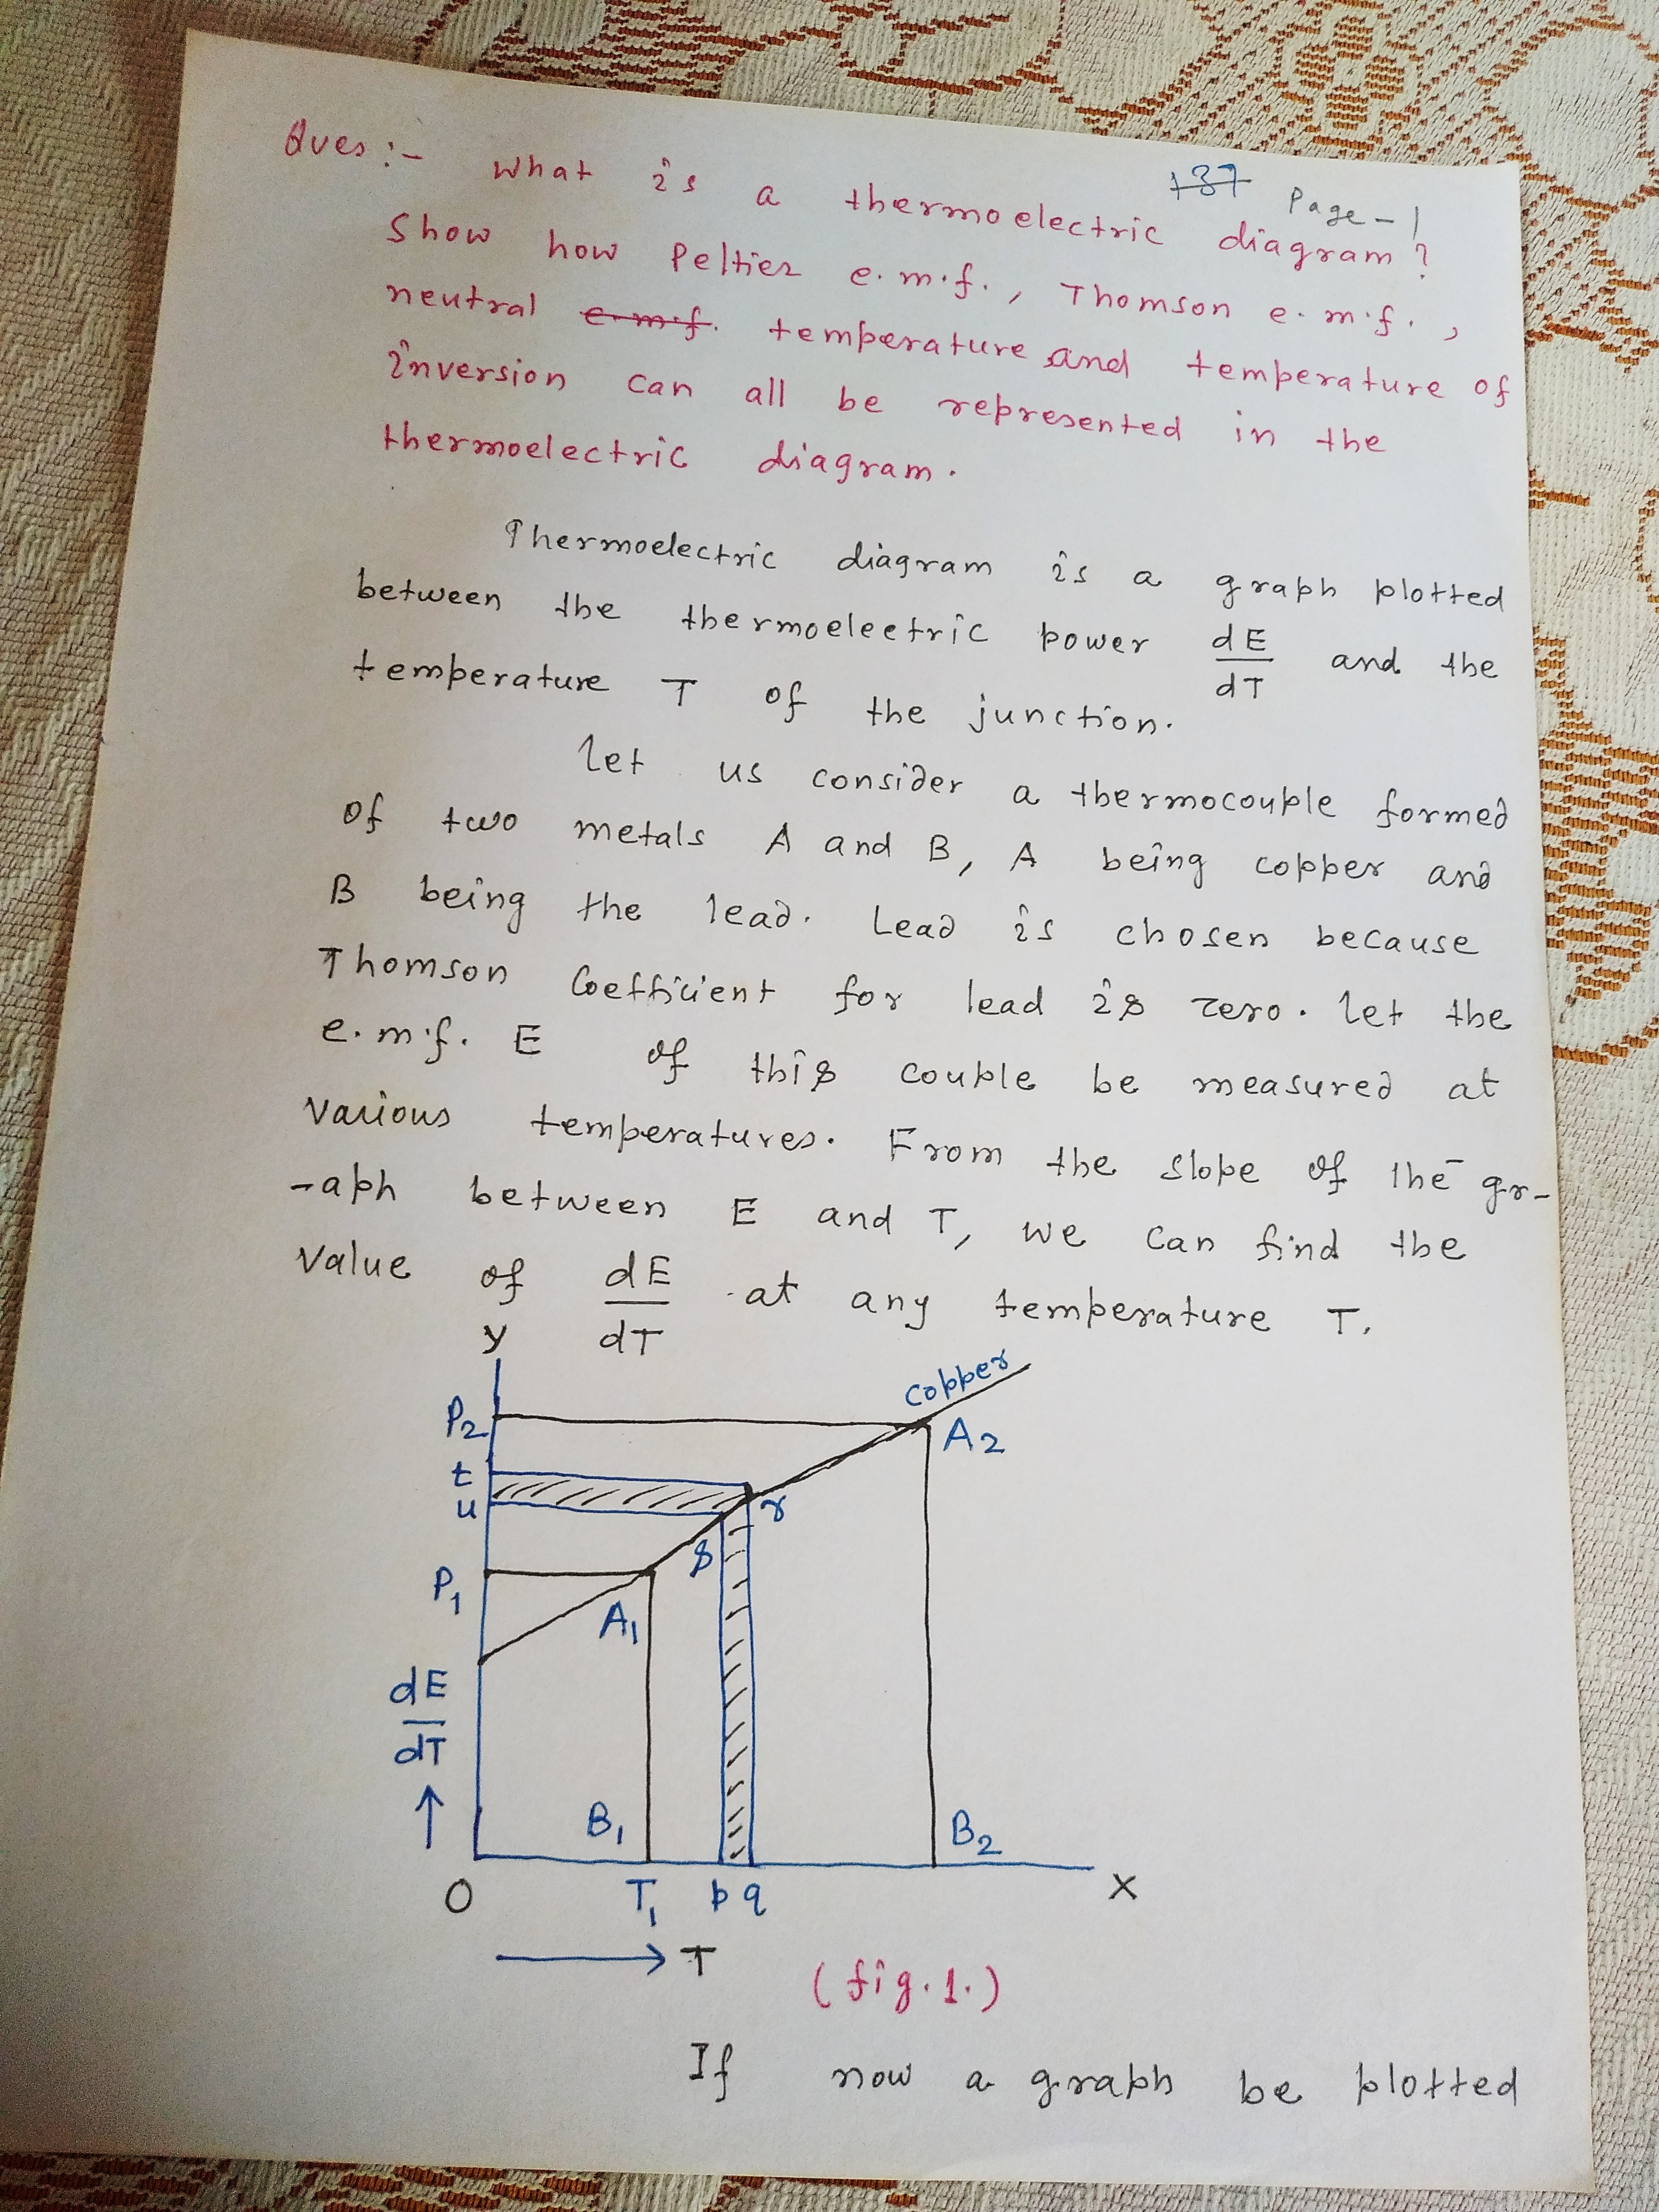 137 Page-1
Ques:- What is a thermoelectric diagram?
Show how Peltier e.m.f., Thomson e.m.f.,
neutral e.m.f. temperature and temperature of
inversion can all be represented in the
thermoelectric diagram.
Thermoelectric diagram is a graph plotted
between the thermoelectric power dE/dT and the
temperature T of the junction.
Let us consider a thermocouple formed
of two metals A and B, A being copper and
B being the lead. Lead is chosen because
Thomson Coefficient for lead is zero. Let the
e.m.f. E of this couple be measured at
various temperatures. From the slope of the gr-
-aph between E and T, we can find the
value of dE/dT at any temperature T.
Y
copper
P2
A2
t
u
r
s
P1
A1
dE/dT
↑
B1
B2
O
T1
p q
X
→ T
(fig.1.)
If now a graph be plotted